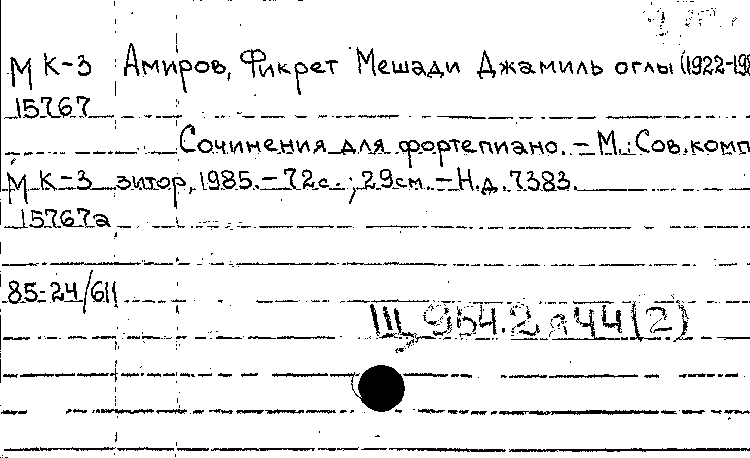 М К-3 Амиров, Фикрет Мешади Джамиль оглы (1922-198
15767
Сочинения для фортепиано. – М.: Сов. комп
М К-3 зитор, 1985. – 72с. ; 29см. – Н.д. 7383.
15767а
85-24/611
Щ 954.2 я 44 (2)